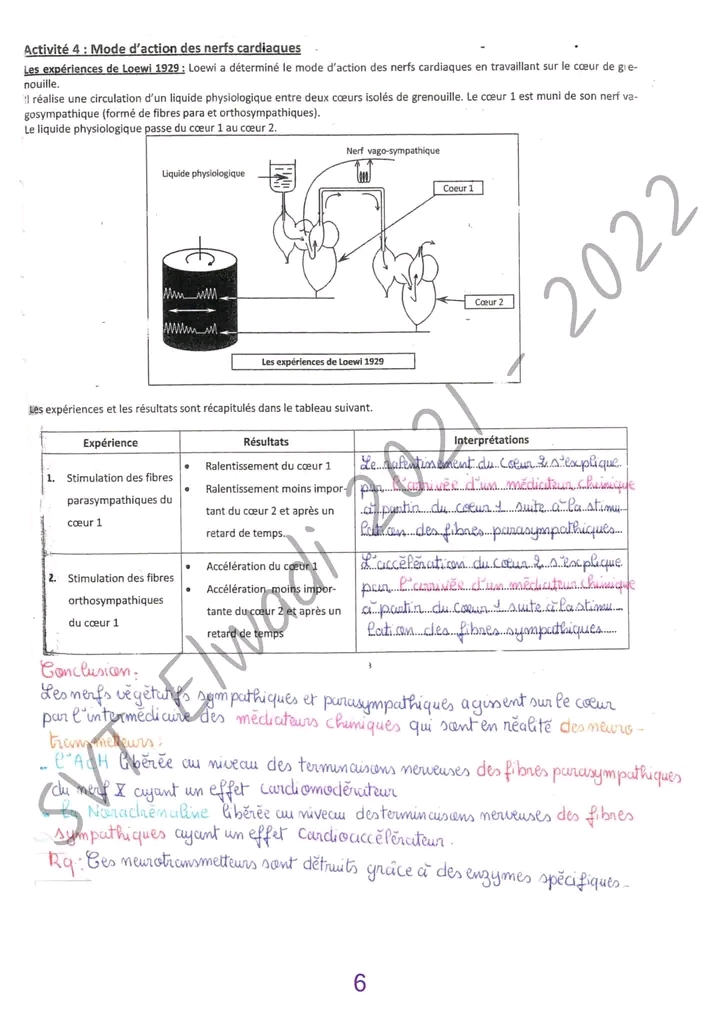 Activité 4 : Mode d'action des nerfs cardiaques
Les expériences de Loewi 1929 : Loewi a déterminé le mode d'action des nerfs cardiaques en travaillant sur le cœur de gre-
nouille.
Il réalise une circulation d'un liquide physiologique entre deux cœurs isolés de grenouille. Le cœur 1 est muni de son nerf va-
gosympathique (formé de fibres para et orthosympathiques).
Le liquide physiologique passe du cœur 1 au cœur 2.
Nerf vago-sympathique
Liquide physiologique
Coeur 1
Cœur 2
Les expériences de Loewi 1929
Les expériences et les résultats sont récapitulés dans le tableau suivant.
Expérience
Résultats
Interprétations
1. Stimulation des fibres
parasympathiques du
cœur 1
• Ralentissement du cœur 1
• Ralentissement moins impor-
tant du cœur 2 et après un
retard de temps.
Le ralentissement du cœur 2 s'explique
par l'arrivée d'un médiateur chimique
à partir du cœur 1 suite à la stimu
lation des fibres parasympathiques
2. Stimulation des fibres
orthosympathiques
du cœur 1
• Accélération du cœur 1
• Accélération moins impor-
tante du cœur 2 et après un
retard de temps
L'accélération du cœur 2 s'explique
par l'arrivée d'un médiateur chimique
à partir du cœur 1 suite à la stimu
lation des fibres sympathiques
Conclusion :
Les nerfs végétatifs sympathiques et parasympathiques agissent sur le cœur
par l'intermédiaire des médiateurs chimiques qui sont en réalité des neuro-
transmetteurs :
- l'ACH libérée au niveau des terminaisons nerveuses des fibres parasympathiques
du nerf X ayant un effet cardiomodérateur
- la Noradrénaline libérée au niveau des terminaisons nerveuses des fibres
sympathiques ayant un effet cardioaccélérateur.
Rq : Ces neurotransmetteurs sont détruits grâce à des enzymes spécifiques.
SVT Elwadi 2021 - 2022
6